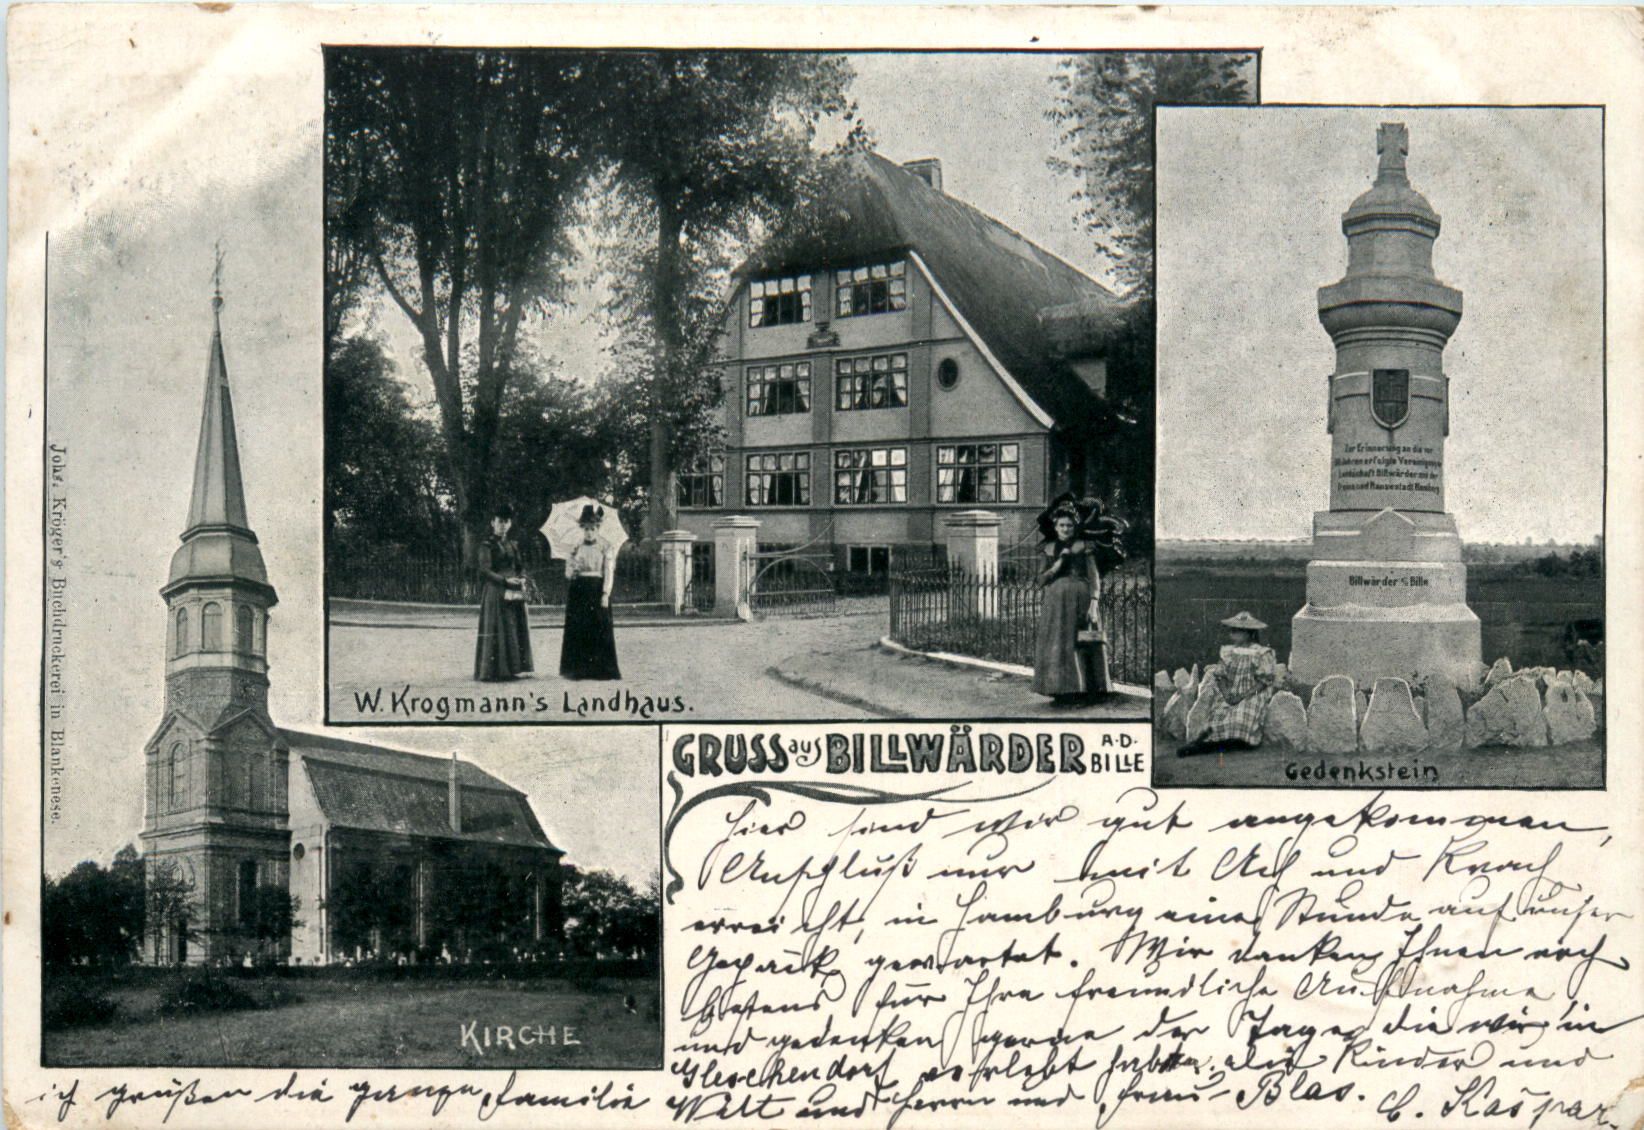 W. Krogmann's Landhaus.
Zur Erinnerung an die vor
Jahren erfolgte Vereinigung der
Landschaft Billwärder mit der
Freien und Hansestadt Hamburg
Billwärder a/d Bille
Gedenkstein
Johs. Kröger's Buchdruckerei in Blankenese.
KIRCHE
GRUSS aus BILLWÄRDER A.D. BILLE
Hier sind wir gut angekommen,
Anschluß nur mit Ach und Krach
erreicht, in Hamburg eine Stunde auf unser
Gepäck gewartet. Wir danken Ihnen noch
bestens für Ihre freundliche Aufnahme
und gedenken gerne der Tage die wir in
Gleschendorf verlebt haben. alle Kinder und
ich grüßen die ganze Familie Witt und Herrn und Frau Blas.
C. Kaspar.